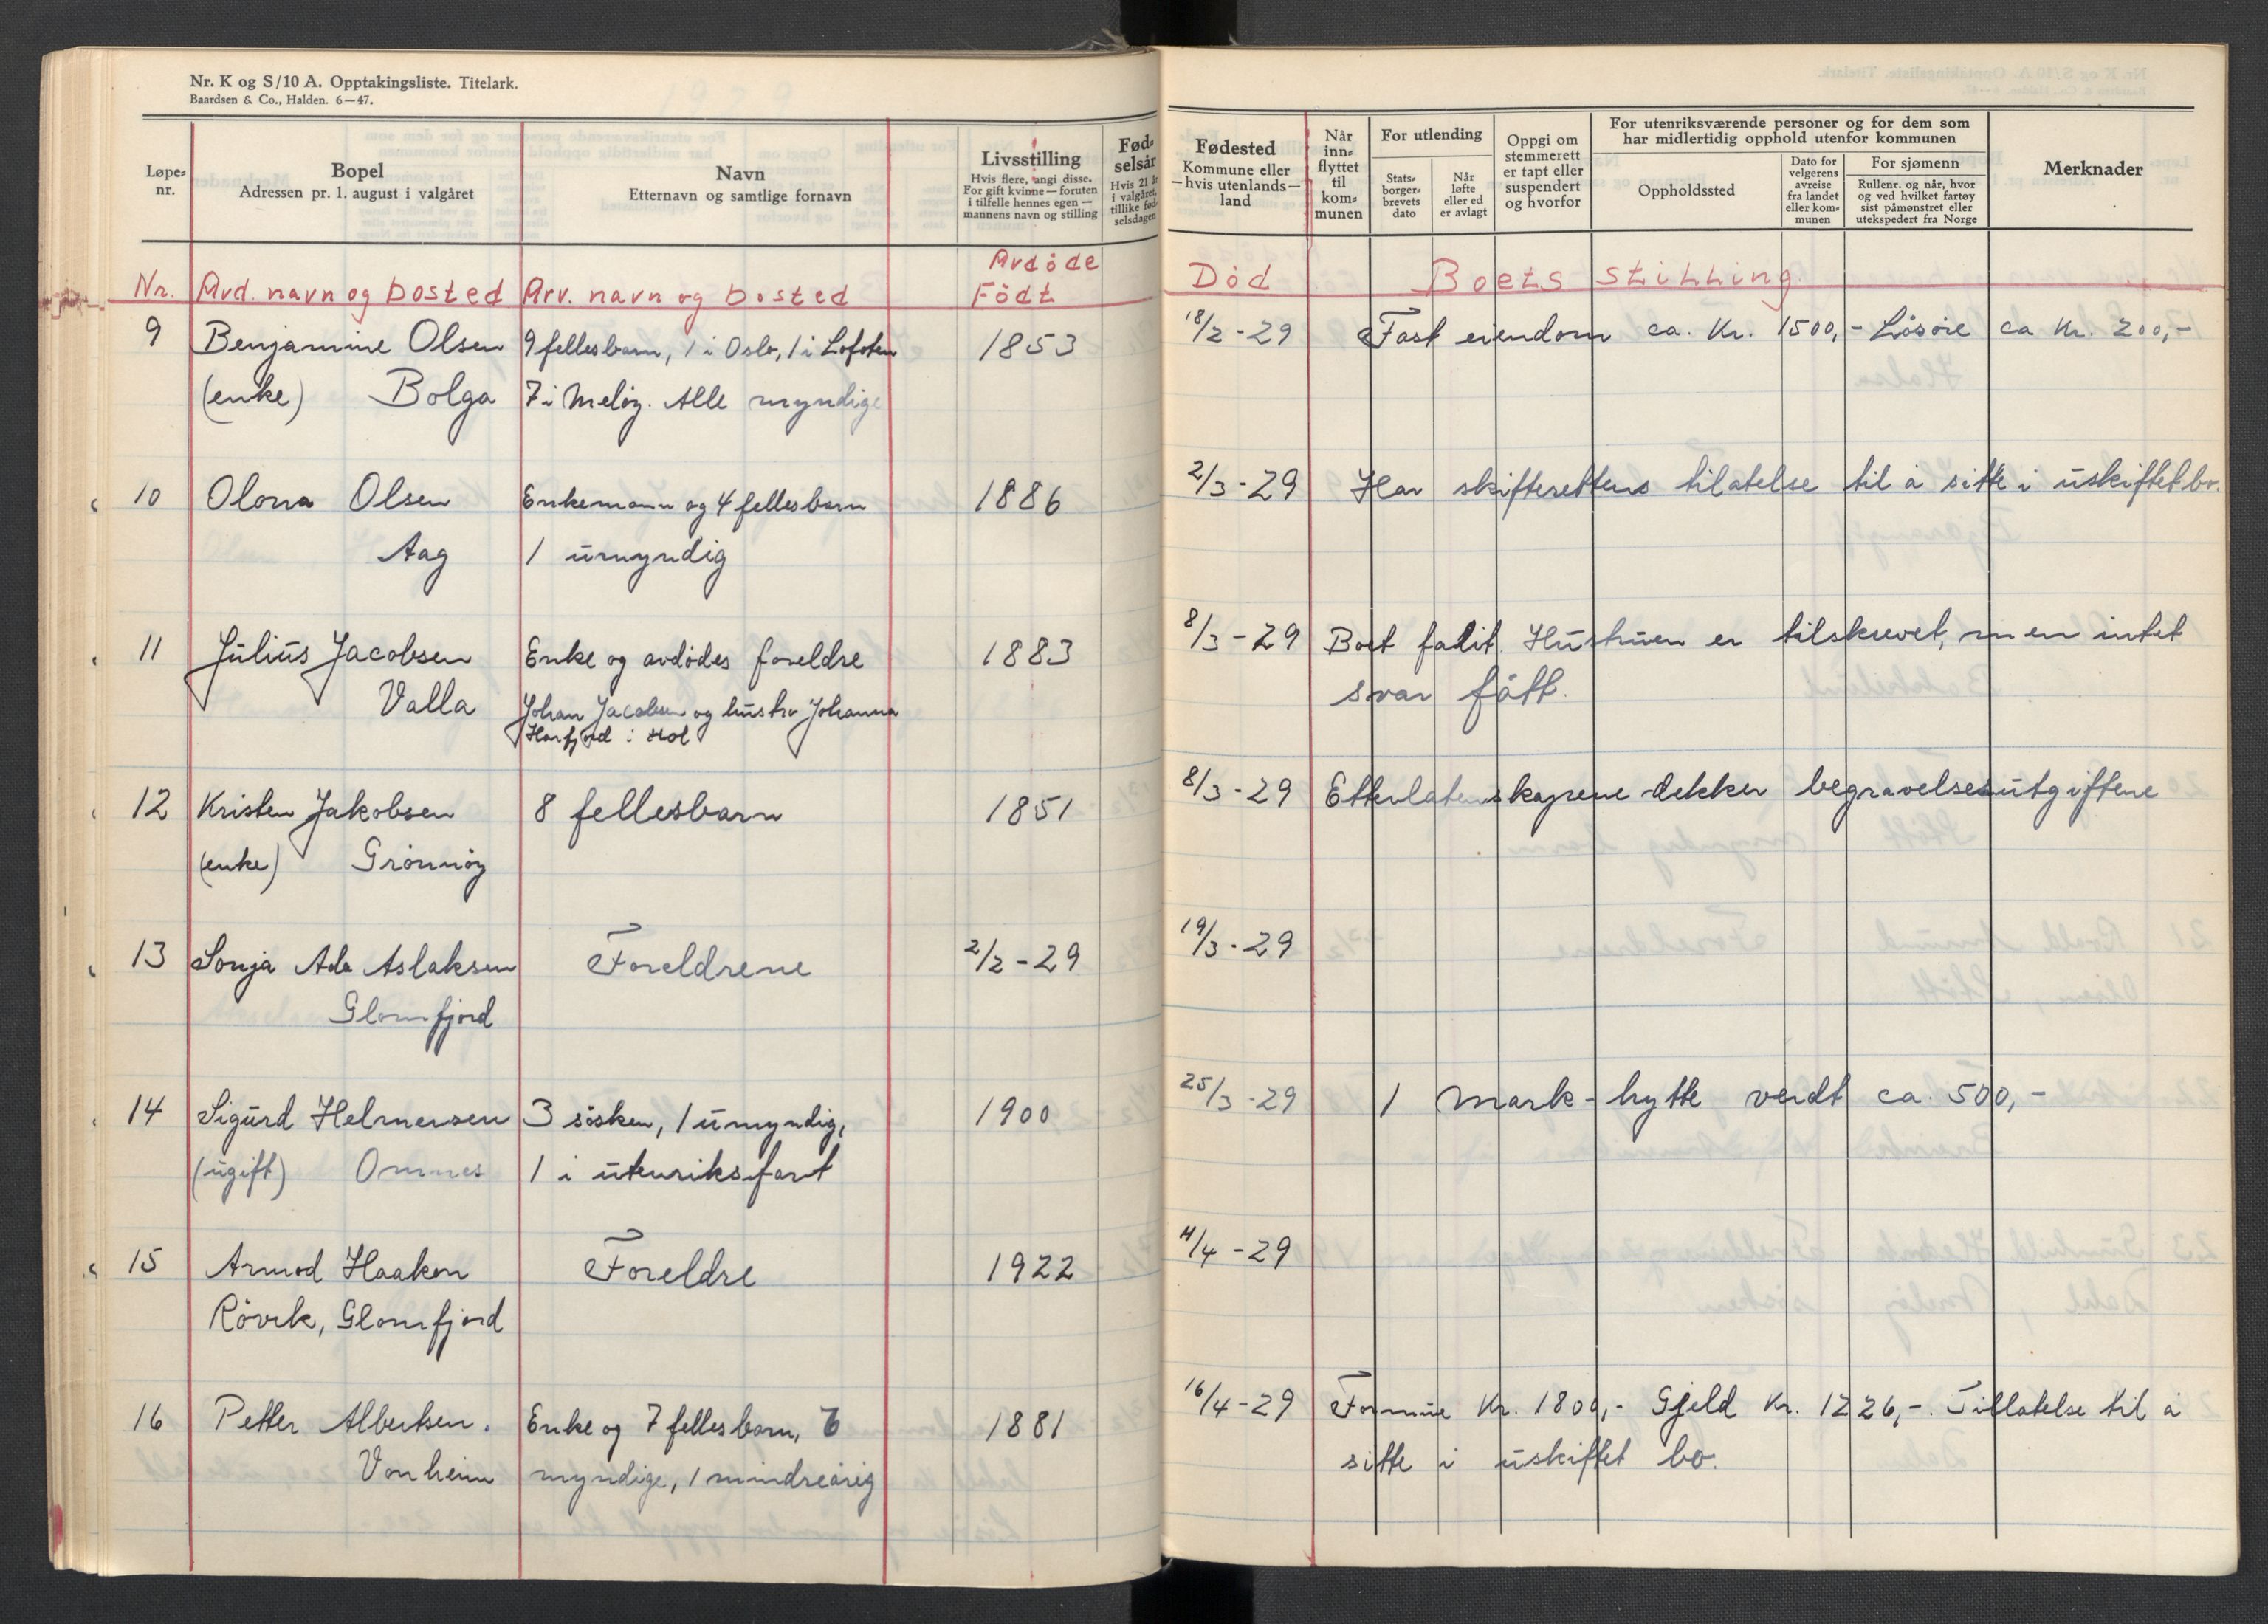 Nr. K og S/10 A. Opptakingsliste. Titelark.
Baardsen & Co., Halden. 6—47.
Løpe-
nr.
Bopel
Adressen pr. 1. august i valgåret
Navn
Etternavn og samtlige fornavn
Livsstilling
Hvis flere, angi disse.
For gift kvinne — foruten
i tilfelle hennes egen —
mannens navn og stilling
Fød-
selsår
Hvis 21 år
i valgåret,
tillike fød-
selsdagen
Fødested
Kommune eller
— hvis utenlands —
land
Når
inn-
flyttet
til
kom-
munen
For utlending
Stats-
borger-
brevets
dato
Når
løfte
eller ed
er avlagt
Oppgi om
stemmerett
er tapt eller
suspendert
og hvorfor
For utenriksværende personer og for dem som
har midlertidig opphold utenfor kommunen
Oppholdssted
Dato for
velgerens
avreise
fra landet
eller kom-
munen
For sjømenn
Rullenr. og når, hvor
og ved hvilket fartøy
sist påmønstret eller
utekspedert fra Norge
Merknader
Nr. Avd. navn og bosted Arv. navn og bosted Avdøde
Født Død Boets stilling.
9 Benjamine Olsen 9 fellesbarn, 1 i Oslo, 1 i Lofoten 1853 18/2 - 29 Fast eiendom ca. Kr. 1500,- Løsøre ca Kr. 200,-
(enke) Bolga 7 i Meløy. Alle myndige
10 Olona Olsen Enkemann og 4 fellesbarn 1886 2/3 - 29 Har skifterettens tilatelse til å sitte i uskiftet bo.
Aag 1 umyndig
11 Julius Jacobsen Enke og avdødes foreldre 1883 8/3 - 29 Boet falit. Hustruen er tilskrevet, men intet
Valla Johan Jacobsen og hustru Johanna svar fått.
Harfjord i Hol
12 Kristen Jakobsen 8 fellesbarn 1851 8/3 - 29 Etterlatenskapene dekker begravelsesutgiftene
(enke) Grønnøy
13 Sonja Ada Aslaksen Foreldrene 2/2 - 29 19/3 - 29
Glomfjord
14 Sigurd Helmersen 3 søsken, 1 umyndig, 1900 25/3 - 29 1 mark-hytte verdt ca. 500,-
(ugift) Ornes 1 i utenriksfart
15 Arnod Haakon Foreldre 1922 4/4 - 29
Røvik, Glomfjord
16 Petter Albertsen. Enke og 7 fellesbarn, 6 1881 16/4 - 29 Formue Kr. 1800,- Gjeld Kr. 1226,-. Tillatelse til å
Vonheim myndige, 1 mindreårig sitte i uskiftet bo.